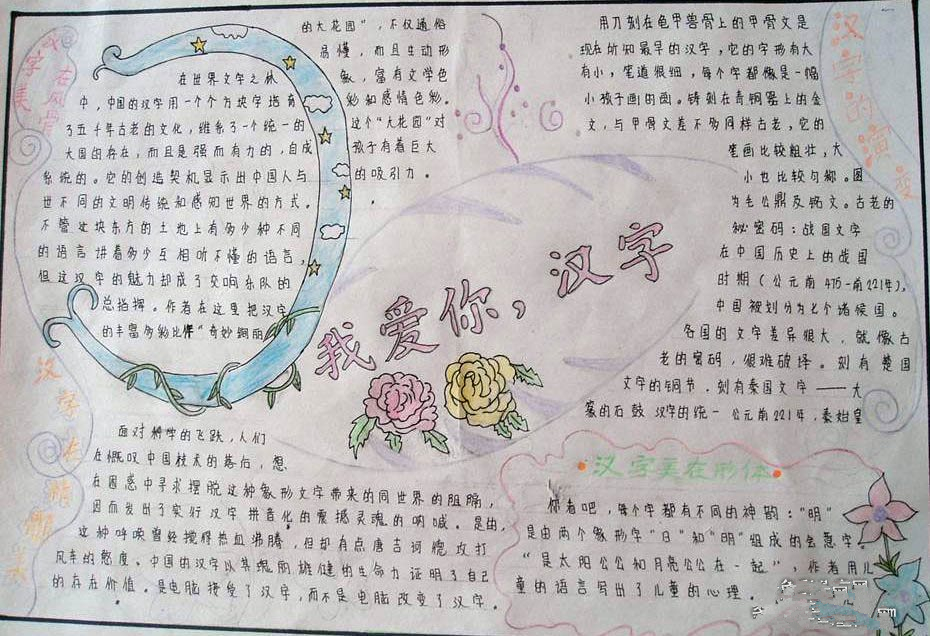 在世界文字之林
中，中国的汉字用一个个方块字培育
了五千年古老的文化，维系了一个统一的
大国的存在，而且是强而有力的，自成
系统的。它的创造契机显示出中国人与
世不同的文明传统和感知世界的方式。
不管这块东方的土地上有多少种不同
的语言讲着多少互相听不懂的语言，
但这汉字的魅力却成了交响乐队的
总指挥。作者在这里把汉字
的丰富多彩比作“奇妙绚丽
的大花园”，不仅通俗
易懂，而且生动形
象，富有文学色
彩和感情色彩。
这个“大花园”对
孩子有着巨大
的吸引力。
用刀刻在龟甲兽骨上的甲骨文是
现在所知最早的汉字，它的字形有大
有小，笔道很细，每个字都像是一幅
小孩子画的画。铸刻在青铜器上的金
文，与甲骨文差不多同样古老，它的
笔画比较粗壮，大
小也比较匀称。图
为毛公鼎及铭文。古老的
秘密码：战国文字
在中国历史上的战国
时期（公元前475-前221年），
中国被划分为七个诸侯国。
各国的文字差异很大，就像古
老的密码，很难破译。刻有楚国
文字的铜节．刻有秦国文字——大
篆的石鼓 汉字的统一 公元前221年，秦始皇
汉字的演变
我爱你，汉字
面对科学的飞跃，人们
在慨叹中国技术的落后，想
在困惑中寻求摆脱这种象形文字带来的同世界的阻隔，
因而发出了实行汉字拼音化的震撼灵魂的呐喊。是由
这种呼唤曾经搅得热血沸腾，但却有点唐吉诃德攻打
风车的憨度。中国的汉字以其瑰丽雄健的生命力证明了自己
的存在价值。是电脑接受了汉字，而不是电脑改变了汉字。
汉字美在形体
你看吧，每个字都有不同的神韵：“明”
是由两个象形字“日”和“明”组成的会意字。
“是太阳公公和月亮公公在一起”，作者用儿
童的语言写出了儿童的心理。